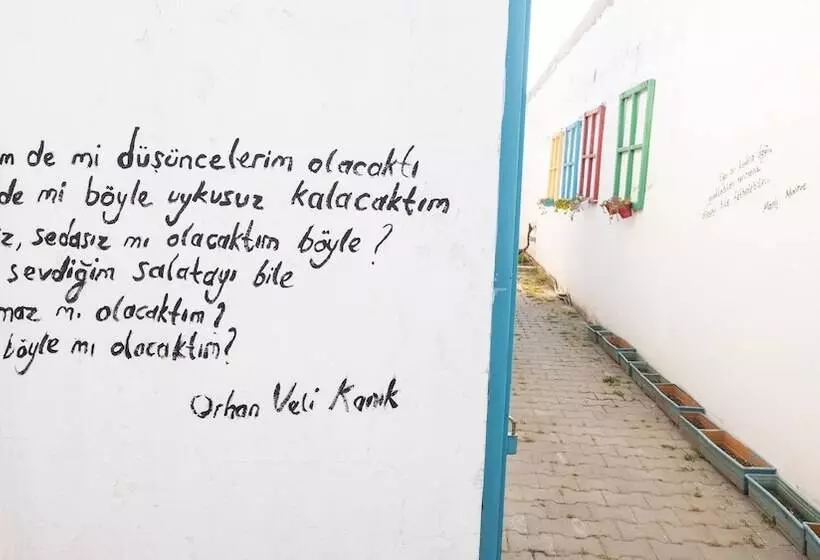 m de mi düşüncelerim olacaktı
de mi böyle uykusuz kalacaktım
iz, sedasız mı olacaktım böyle?
sevdiğim salatayı bile
maz mı olacaktım?
böyle mi olacaktım?
Orhan Veli Kanık